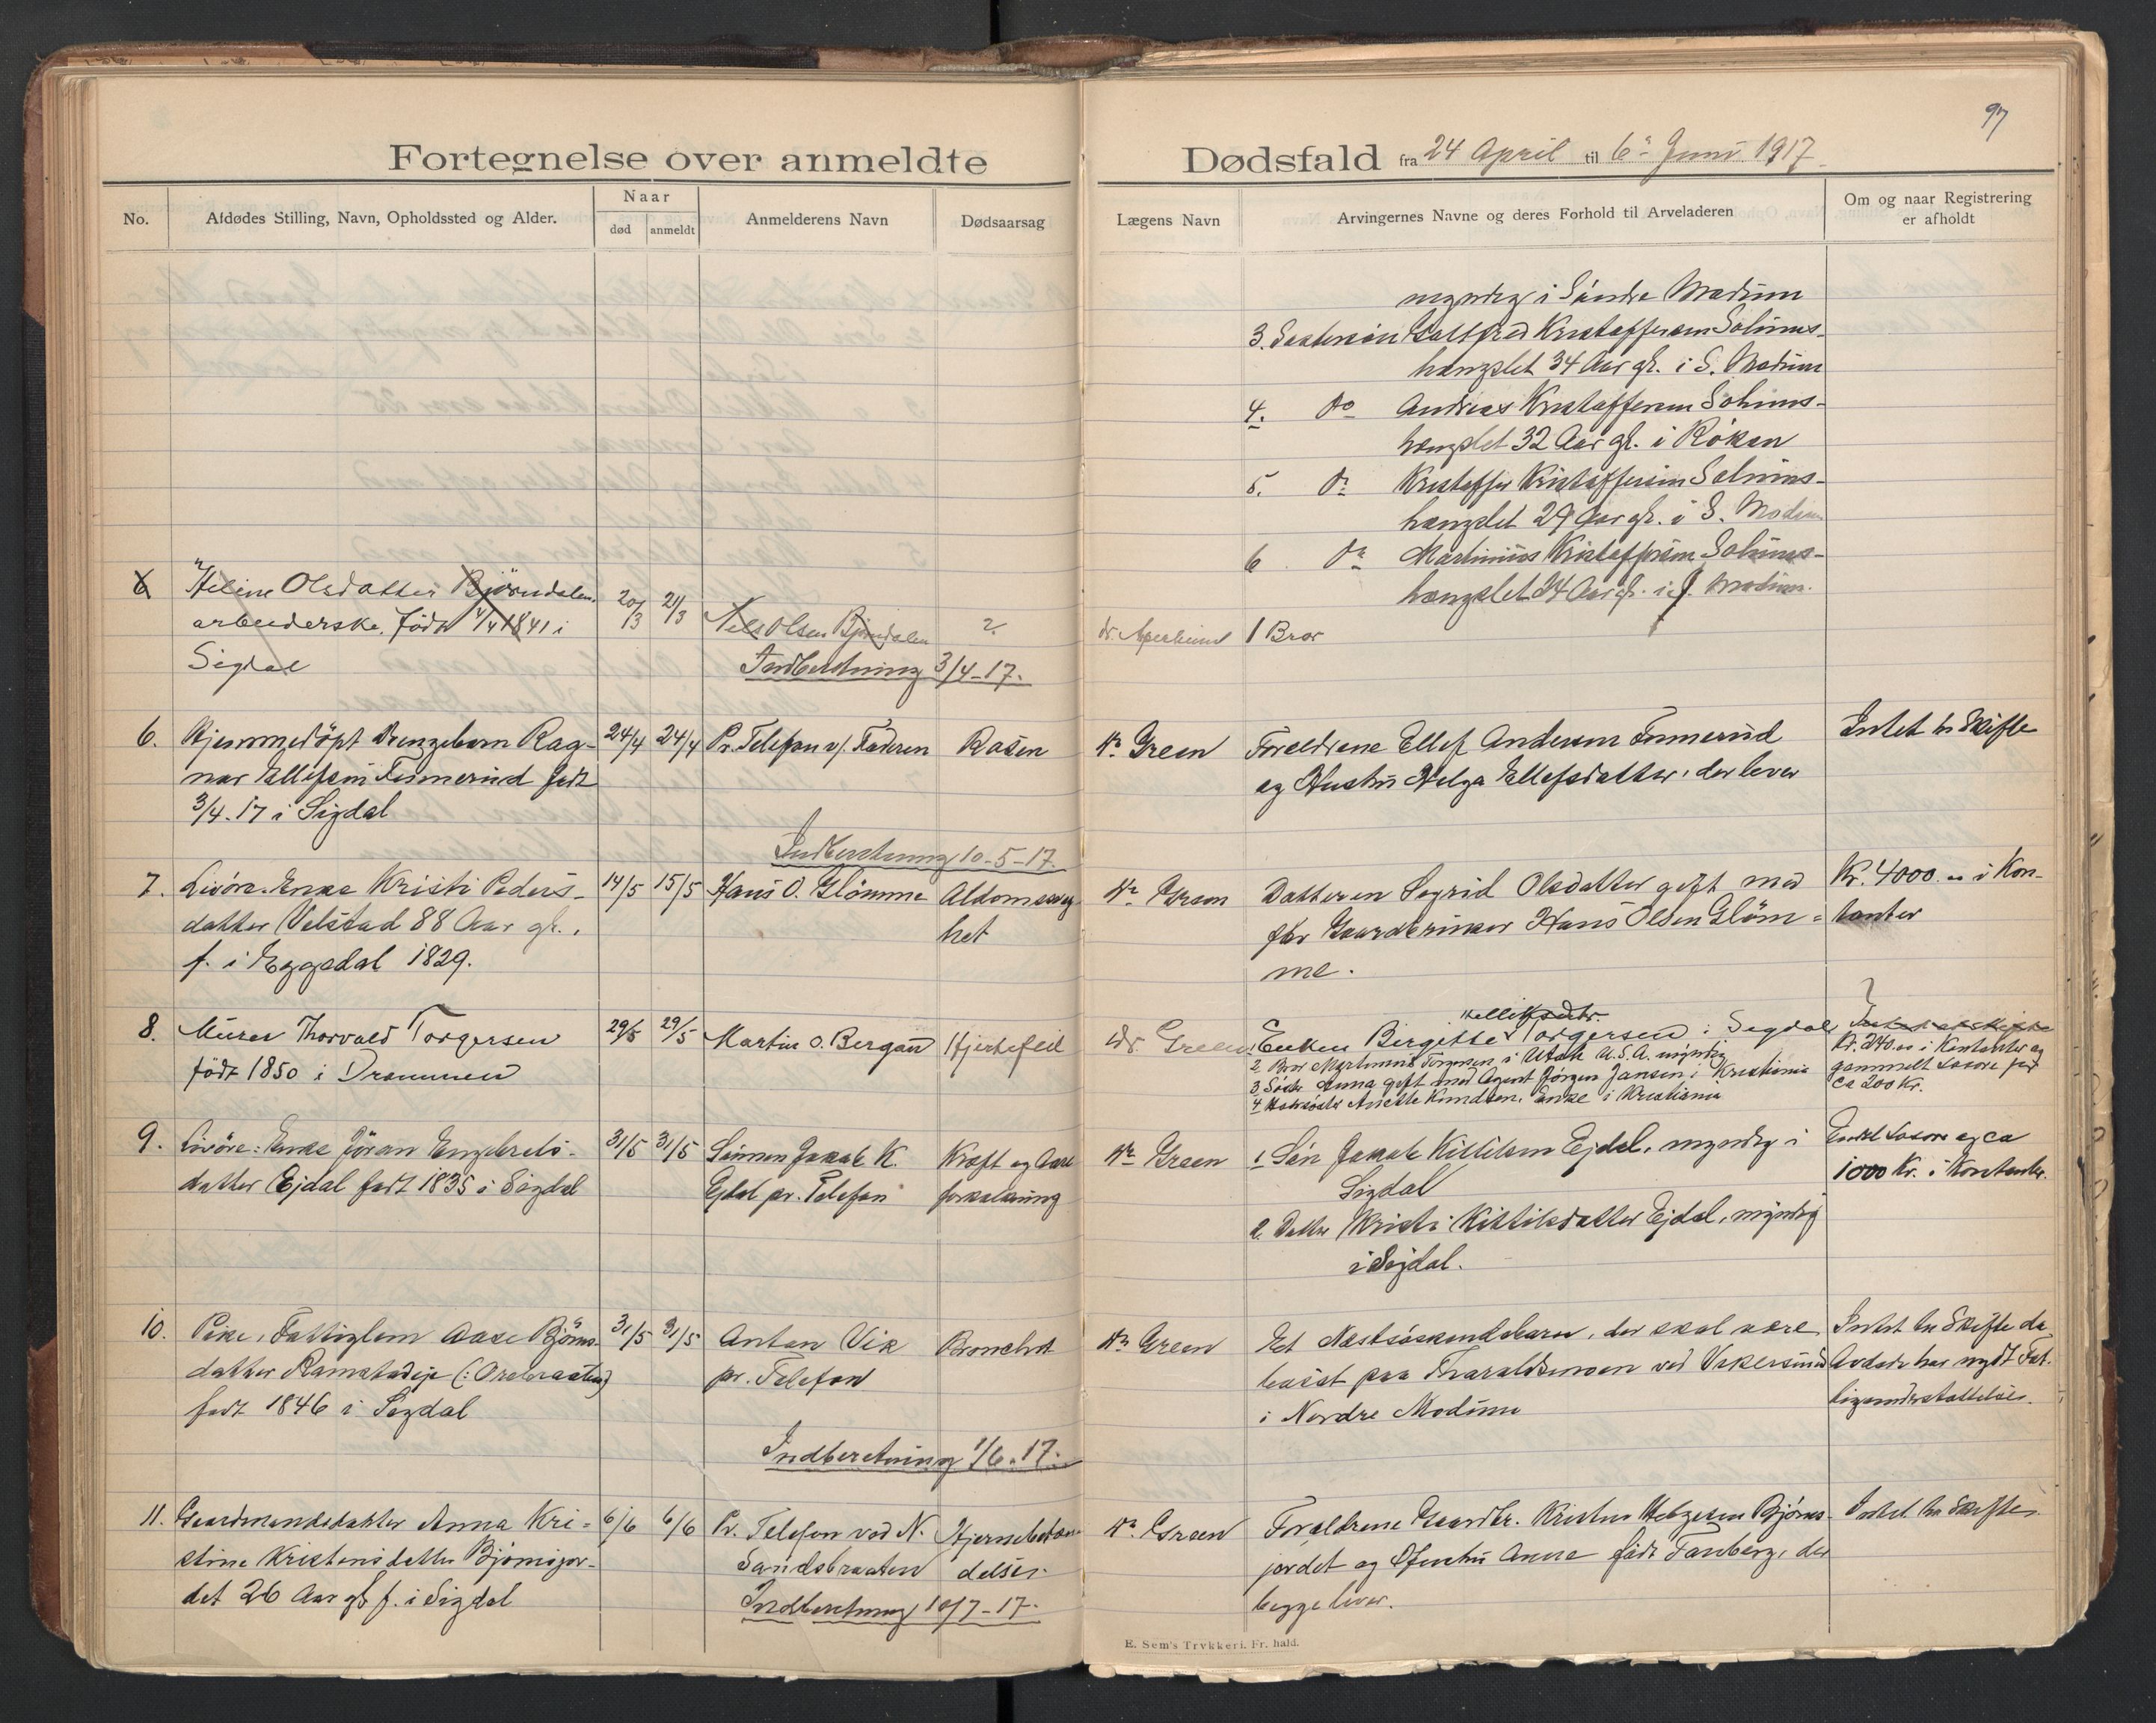 97
Fortegnelse over anmeldte Dødsfald fra 24 April til 6te Juni 1917
No.
Afdødes Stilling, Navn, Opholdssted og Alder.
Naar
død
anmeldt
Anmelderens Navn
Dødsaarsag
Lægens Navn
Arvingernes Navne og deres Forhold til Arveladeren
Om og naar Registrering
er afholdt
myndig i Søndre Modum
3. Søstersøn Gottfred Kristoffersen Solums-
hængslet 34 Aar gl. i S. Modum
4. do Andreas Kristoffersen Solums-
hængslet 32 Aar gl. i Röken
5. do Kristoffer Kristoffersen Solums-
hængslet 29 Aar gl. i S. Modum
6 do Martinius Kristoffersen Solums-
hængslet 24 Aar gl. i S. Modum.
6 Heline Olsdatter Bjørndalen 20/3 21/3 Nels Olsen Bjørndalen ? 1 Bror
arbeiderske, født 4/4 1841 i
Sigdal
Indberetning 3/4-17.
6. Hjemmedöpt Drengebarn Rag- 24/4 24/4 Pr. Telefon v/. Faderen Rosen Dr Green Forældrene Ellef Andersen Finnerud Intet til Skifte
nar Ellefsen Finnerud født og Hustru Helga Ellefsdatter, der lever
3/4-17 i Sigdal
Indberetning 10-5-17.
7. Livöre. Enke Kristi Peders- 14/5 15/5 Hans O. Glömme Aldomssvag- Dr Green Datteren Sigrid Olsdatter gift med Kr. 4000.00 i Kon-
datter Velstad 88 Aar gl. het fhv Gaardbruker Hans Olsen Glöm- tanter
f. i Eggedal 1829. me.
8. Murer Thorvald Torgersen 29/5 29/5 Martin O. Bergan Hjertefeil Dr. Green 1 Enken Birgitte Kelliksdtr. Torgersen i Sigdal ? Intet at skifte
født 1850 i Drammen 2 Bror Martinius Torgersen i Utah U.S.A. myndig Kr. 240.00 i Kontanter og
3 Søster Anna gift med Agent Jørgen Jansen i Kristiania gammelt Løsøre for
4 Halvsøster Anette Knudsen, Enke i Kristiania ca 200 Kr.
9. Livöre: Enke Jöran Engebrets- 31/5 31/5 Sönnen Jakob K. Kræft og Aare- Dr Green 1 Søn Jakob Kittilsen Ejdal, myndig i Endel Løsøre og ca
datter Ejdal født 1835 i Sigdal Ejdal pr. Telefon forkalkning Sigdal 1000 Kr. i Kontanter.
2. Datter Kristi Kittilsdatter Ejdal, myndig
i Sigdal.
10. Pike, Fattiglem Aase Bjørns- 31/5 31/5 Anton Vik Bronchit Dr Green Et Næstsøskendebarn, der skal være Intet til Skifte da
datter Ramstadeje pr. Telefon bosat paa Tharaldsmoen ved Vikersund Avdøde har nydt Fat-
født 1846 i Sigdal i Nordre Modum tigunderstøttelse.
Indberetning 1/6-17.
11. Gaardmandsdatter Anna Kri- 6/6 6/6 Pr. Telefon ved N. Hjernebetæn- Dr Green Forældrene Gaardbr. Kristen Helgesen Bjørns- Intet til Skifte.
stine Kristensdatter Bjørnsjor- Sandsbraaten delse jordet og Hustru Anne født Fonberg, der
det 26 Aar gl. f. i Sigdal begge lever.
Indberetning 10/7-17.
E. Sem's Trykkeri. Fr. hald.